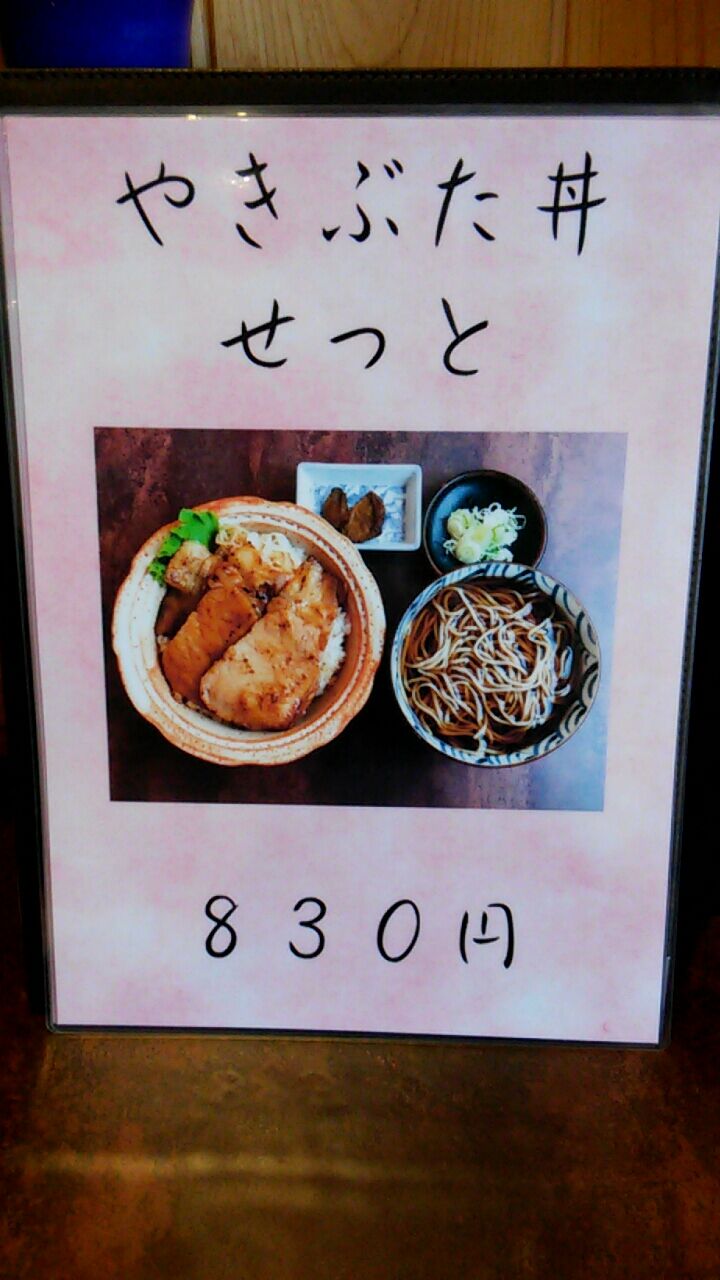 やきぶた丼
せっと
８３０円